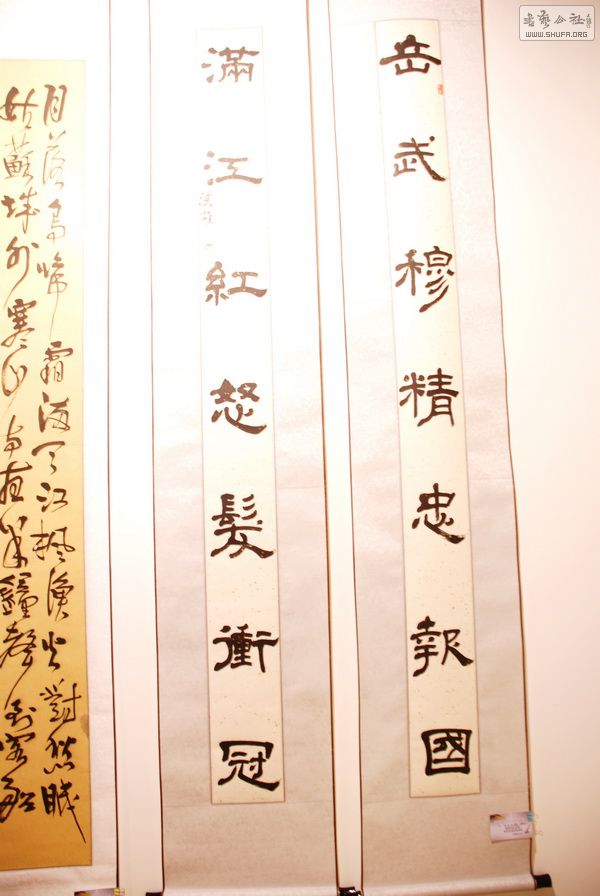 書藝公社
WWW.SHUFA.ORG
岳武穆精忠報國
滿江紅怒髮衝冠
月落烏啼霜滿天江楓漁火對愁眠
姑蘇城外寒山寺夜半鐘聲到客船